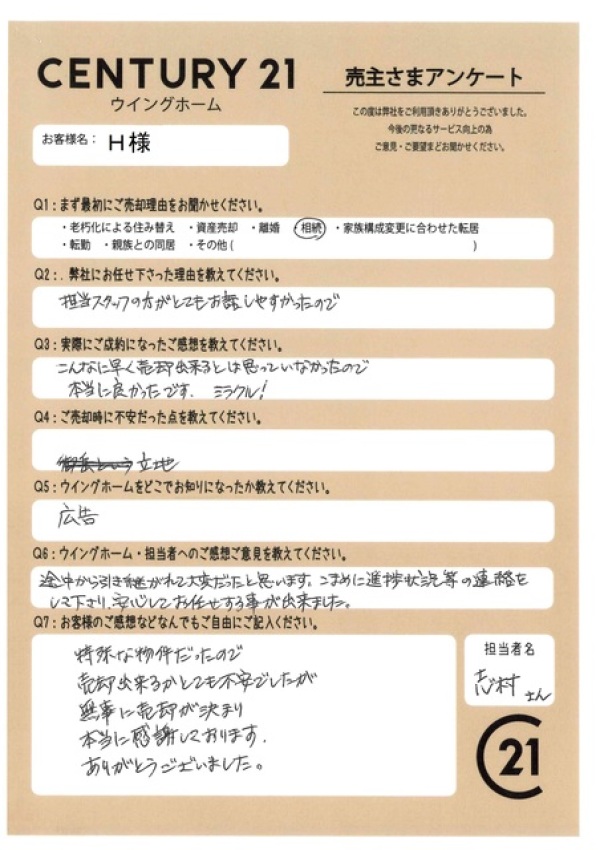 CENTURY 21
ウイングホーム
売主さまアンケート
この度は弊社をご利用頂きありがとうございました。
今後の更なるサービス向上の為
ご意見・ご要望まどお聞かせください。
お客様名： H様
Q1：まず最初にご売却理由をお聞かせください。
・老朽化による住み替え ・資産売却 ・離婚 ・相続 ・家族構成変更に合わせた転居
・転勤 ・親族との同居 ・その他 ( )
Q2：. 弊社にお任せ下さった理由を教えてください。
担当スタッフの方がとてもお話しやすかったので
Q3：実際にご成約になったご感想を教えてください。
こんなに早く売却出来るとは思っていなかったので
本当に良かったです. ミラクル!
Q4：ご売却時に不安だった点を教えてください。
立地
Q5：ウイングホームをどこでお知りになったか教えてください。
広告
Q6：ウイングホーム・担当者へのご感想ご意見を教えてください。
途中から引き継がれて大変だったと思います。こまめに進捗状況等の連絡を
して下さり、安心してお任せする事が出来ました。
Q7：お客様のご感想などなんでもご自由にご記入ください。
特殊な物件だったので
売却出来るかとても不安でしたが
無事に売却が決まり
本当に感謝しております.
ありがとうございました。
担当者名
志村 さん
C21